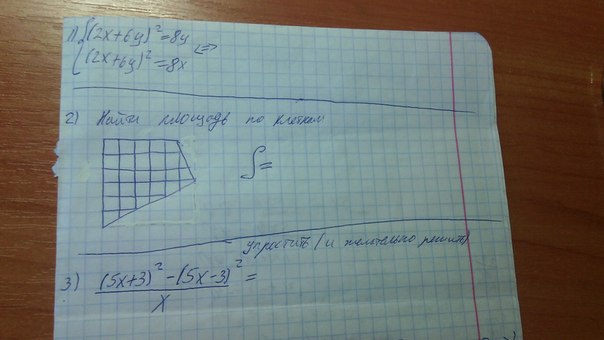 1) { (2x+6y)² = 8y
(2x+6y)² = 8x <=>
2) Найти площадь по клеткам
S =
упростить (и желательно решить)
3) (5x+3)² - (5x-3)² =
x